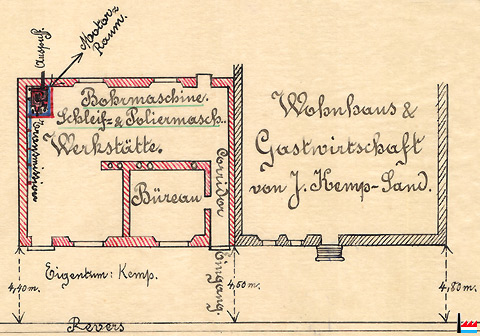 Auspuff.
Motor=
Raum.
Bohrmaschine.
Schleif= & Poliermasch.
Werkstätte.
Transmission
Büreau
Corridor
Eingang.
Wohnhaus &
Gastwirtschaft
von J. Kemp-Sand.
Eigentum: Kemp.
4,40m.
4,60m.
4,80m.
Revers